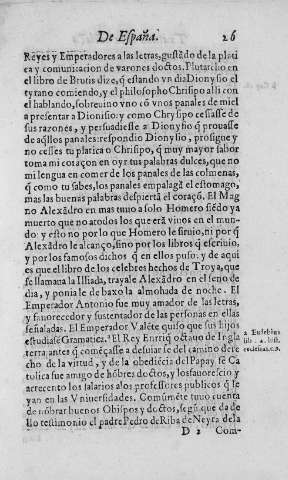 De España. 26
Reyes y Emperadores a las letras, gustãdo de la plati
ca y comunicacion de varones doctos. Plutarcho en
el libro de Brutis dize, q̃ estando vn dia Dionysio el
tyrano comiendo, y el philosopho Chrisipo alli con
el hablando, sobreuino vno cõ vnos panales de miel
a presentar a Dionisio: y como Chrysipo cessasse de
sus razones, y persuadiesse a Dionysio q̃ prouasse
de aq̃llos panales: respondio Dionysio, prosigue y
no cesses tu platica o Chrisipo, q̃ muy mayor sabor
toma mi coraçon en oyr tus palabras dulces, que no
mi lengua en comer de los panales de las colmenas,
q̃ como tu sabes, los panales empalagã el estomago,
mas las buenas palabras despiertã el coraçõ. El Mag
no Alexãdro en mas tuuo a solo Homero siẽdo ya
muerto que no a todos los que erã viuos en el mun-
do: y esto no por lo que Homero le siruio, ni por q̃
Alexãdro le alcanço, sino por los libros q̃ escriuio,
y por los famosos dichos q̃ en ellos puso: y de aqui
es que el libro de los celebres hechos de Troya, que
se llamaua la Illiada, trayale Alexãdro en el seno de
dia, y ponia le debaxo la almohada de noche. El
Emperador Antonio fue muy amador de las letras,
y fauorecedor y sustentador de las personas en ellas
señaladas. El Emperador Valẽte quiso que sus hijos
estudiassẽ Gramatica. El Rey Enrriq̃ octauo de Ingla
terra antes q̃ começasse a desuiarse del camino dere
cho de la virtud, y de la obediẽcia del Papa, y fe Ca
tolica fue amigo de hõbres doctos, y los fauorescio y
acrecento los salarios a los professores publicos q̃ le
yan en las Vniuersidades. Comũmẽte tuuo cuenta
de nõbrar buenos Obispos y doctos, segũ que da de
llo testimonio el padre Pedro de Riba de Neyra de la
a Eusebius
lib. 2. hist.
ecclesias.
D 2 Com-